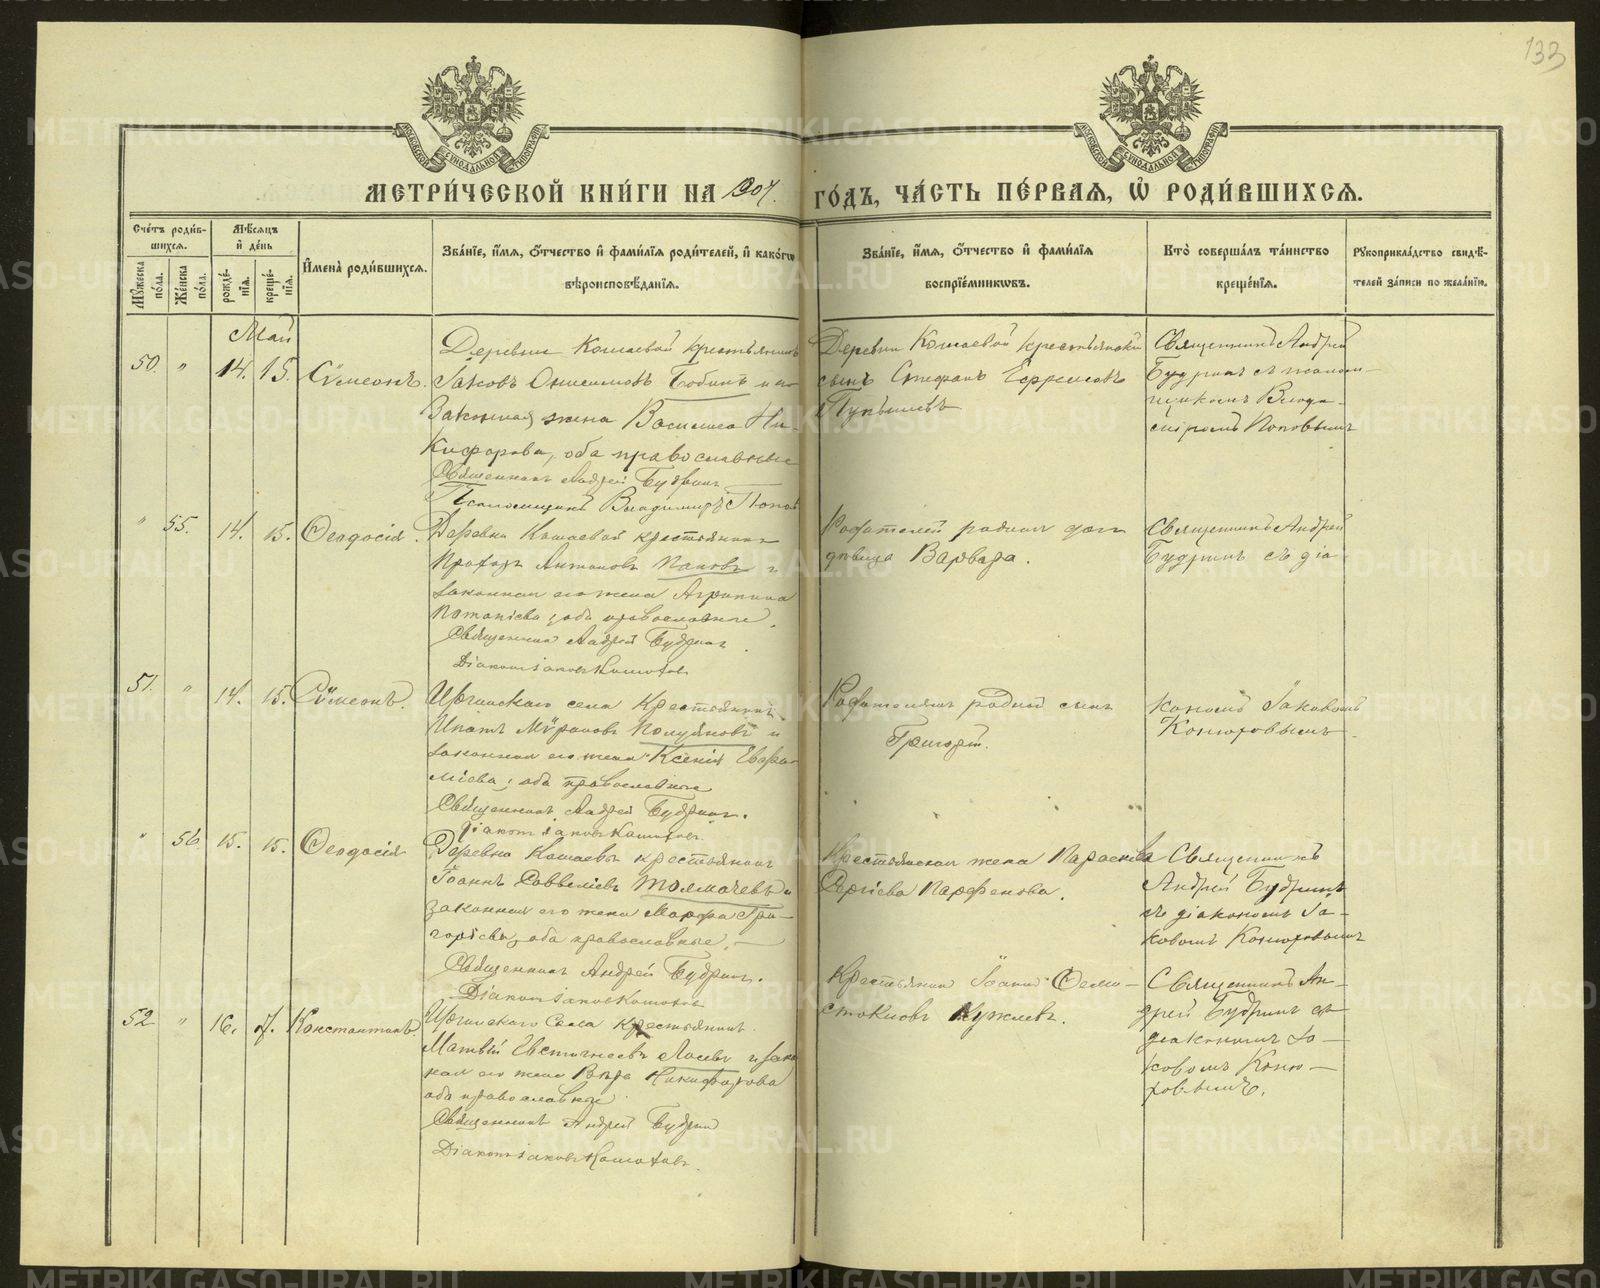 133
МОСКОВСКОЙ СУНОДАЛЬНОЙ ТИПОГРАФІИ
МОСКОВСКОЙ СУНОДАЛЬНОЙ ТИПОГРАФІИ
МЕТРИ́ЧЕСКОЙ КНИ́ГИ НА 1907. ГО́ДЪ, ЧА́СТЬ ПЕ́РВАЯ, Ѡ҆ РОДИ́ВШИХСЯ.
Сче́тъ роди́в-
шихся.
Мꙋ́жеска по́ла.
Же́нска по́ла.
Мѣ́сяцъ
и҆ де́нь
рожде́-
нїя.
креще́-
нїя.
И҆мена̀ роди́вшихся.
Зва́нїе, и҆́мя, ѻ҆́тчество и҆ фами́лїя роди́телей, и҆ како́гѡ
вѣроисповѣ́данїя.
Зва́нїе, и҆́мя, ѻ҆́тчество и҆ фами́лїя
воспрїе́мникѡвъ.
Кто̀ соверша́лъ та́инство
креще́нїя.
Рꙋкоприкла́дство свидѣ́-
телей за́писи по жела́нїю.
Май
50. " 14. 15. Сѵмеонъ.
Деревни Кошаевой крестьянинъ
Іаковъ Онисимовъ Бобинъ и его
законная жена Васиلиса Ни-
кифорова, оба православные
Священникъ Андрей Будринъ
Псаломщикъ Владимиръ Поповъ
Деревни Кошаевой крестьянскій
сынъ Стефанъ Ефремовъ
Священникъ Андрей
Будринъ съ псалом-
щикомъ Влади-
міромъ Поповымъ
" 55. 14. 15. Ѳеодосія.
Деревни Кошаевой крестьянинъ
Антоновъ Поповъ и
законная его жена Агрипина
Потапіева, оба православные.
Священникъ Андрей Будринъ.
Діаконъ Іаковъ Конюховъ
Родителей родная дочь
дѣвица Варвара.
Священникъ Андрей
Будринъ съ діа
51. " 14. 15. Сѵмеонъ.
Иргинскаго села Крестьянинъ
Ипатъ и
законная его жена Ксенія Евфи-
міева, оба православные
Священникъ Андрей Будринъ.
Діаконъ Іаковъ Конюховъ.
Родителямъ родной сынъ
Григорій.
кономъ Іаковомъ
Конюховымъ.
" 56. 15. 15. Ѳеодосія
Деревни Кошаевы крестьянинъ
Іоаннъ Савветіевъ Толмачевъ и
законная его жена Марфа Гри-
горіева, оба православные.
Священникъ Андрей Будринъ.
Діаконъ Іаковъ Конюховъ
Крестьянская жена Параскева
Сергіева Парфенова.
Священникъ
Андрей Будринъ
съ діакономъ Іа-
ковомъ Конюховымъ
52 " 16. Константинъ.
Иргинскаго Села Крестьянинъ
Матвѣй Евстигнеевъ и закон
ная его жена Вѣра Никифорова
оба православные
Священникъ Андрей Будринъ
Діаконъ Іаковъ Конюховъ.
Крестьянинъ Іоаннъ Ѳеми-
стокловъ
Священникъ Ан-
дрей Будринъ съ
діакономъ Іа-
ковомъ Коню-
ховымъ.
METRIKI.GASO-URAL.RU